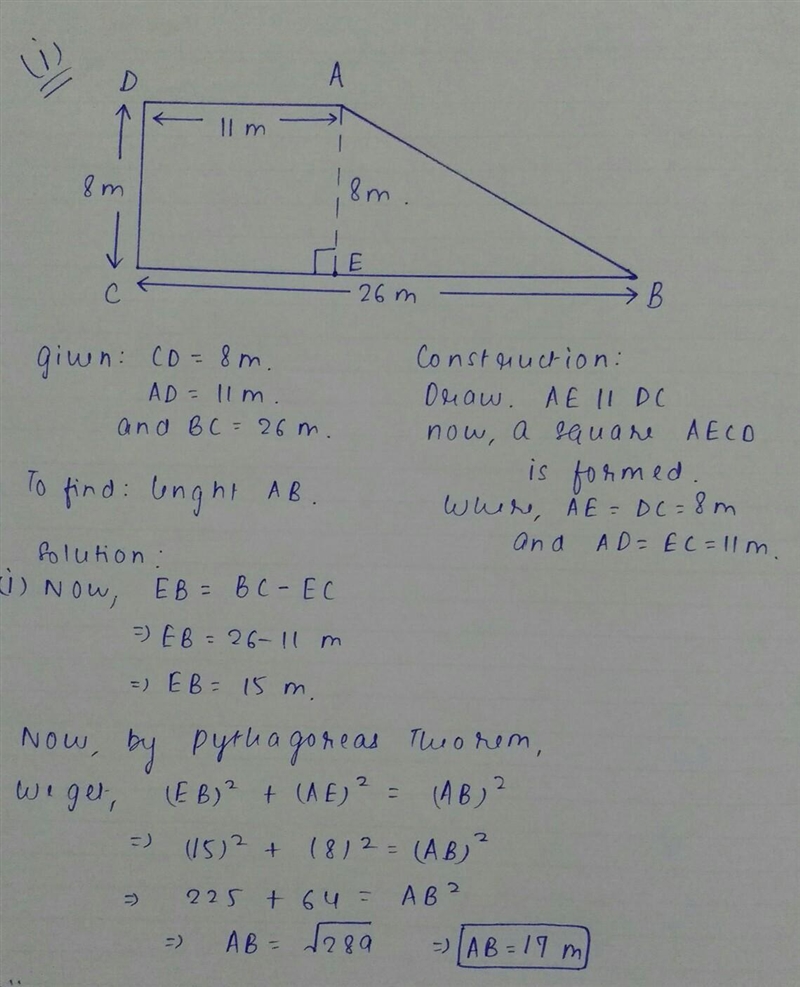 (i)
D A
11 m
8 m 8 m.
E
C 26 m B
given: CD = 8 m.
AD = 11 m.
and BC = 26 m.
To find: lenght AB.
Construction:
Draw. AE || DC
now, a square AECD
is formed.
Where, AE = DC = 8 m
and AD = EC = 11 m.
Solution:
(i) Now, EB = BC - EC
=> EB = 26 - 11 m
=> EB = 15 m.
Now, by pythagoreas Theorem,
We get, (EB)² + (AE)² = (AB)²
=> (15)² + (8)² = (AB)²
=> 225 + 64 = AB²
=> AB = √289 => AB = 17 m